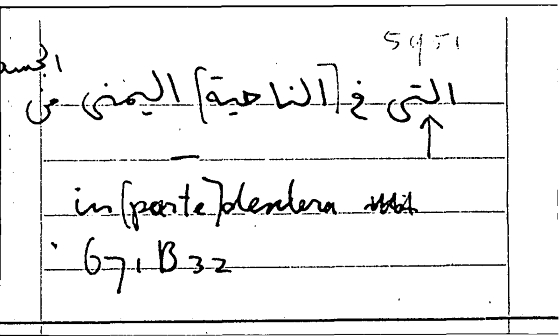 التي في [الناحية] اليمنى من
in [parte] dextera
671 B 32